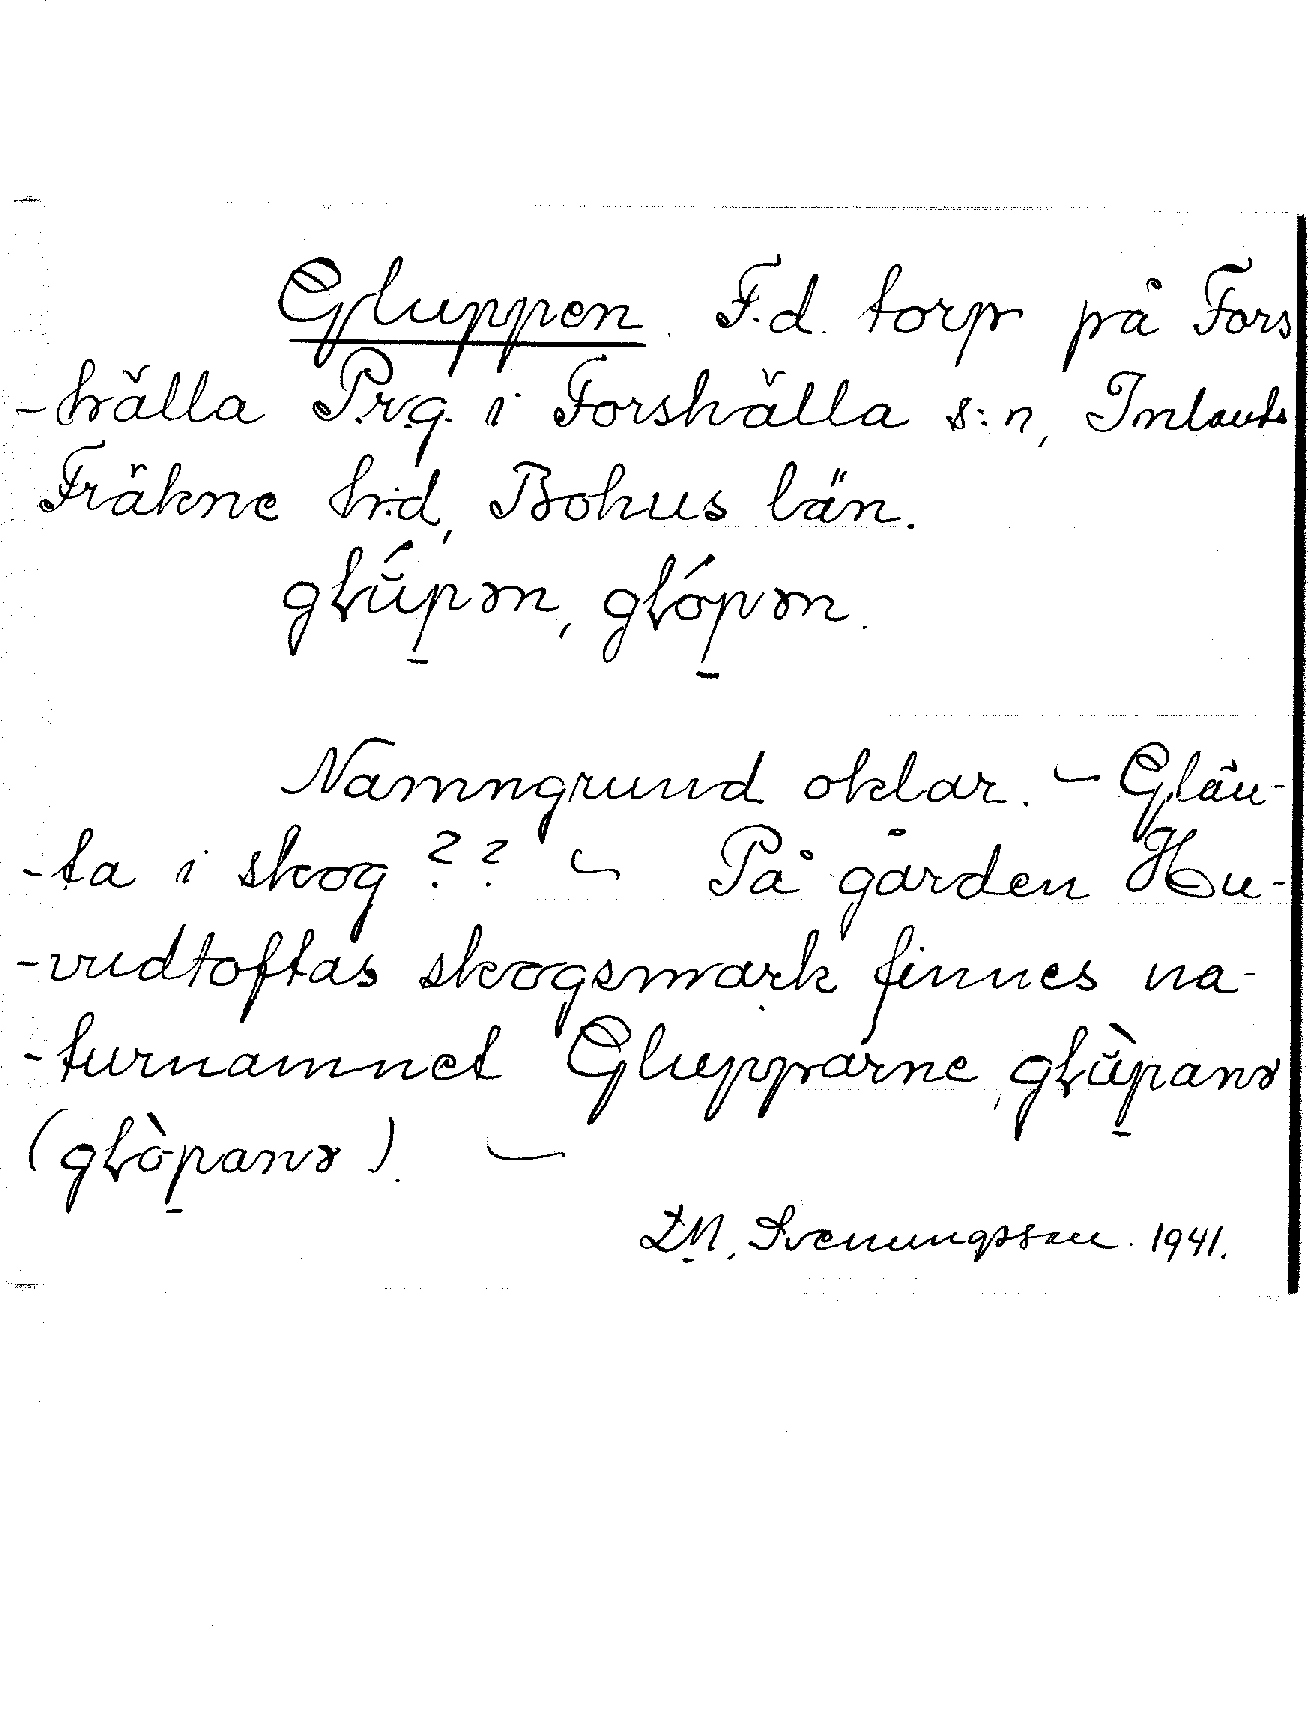 Gluppen. F.d. torp på Fors
-hälla Prg. i Forshälla s:n, Inlands
Fräkne h:d, Bohus län.
głu̇́pən, głópən.
Namngrund oklar. – Glän-
-ta i skog?? – På gården Hu-
-vudtoftas skogsmark finnes na-
-turnamnet Glupparne, głùpanə
(głòpanə). –
D.N. Svenungsson. 1941.